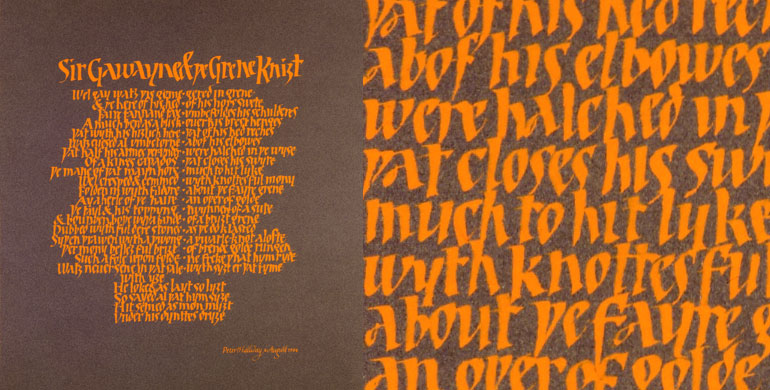 Sir Gawayne & þe Grene Knizt
Wel gay watz þis gome · gered in grene
& þe here of his hed · of his hors swete
Fayre fannand fax · vmbefoldes his schulderes
A much berd as a busk · ouer his brest henges
Þat wyth his hizlich here · þat of his hed reches
Watz euesed al vmbetorne · abof his elbowes
Þat half his armes þer vnder · were halched in þe wyse
Of a kinges capados · þat closes his swyre
Þe mane of þat mayn hors · much to hit lyke
Wel cresped & cemmed · wyth knottes ful mony
Folden in wyth fildore · about þe fayre grene
Ay a herle of þe · an oþer of golde
Þe tayl & his toppyng · twynnen of a sute
& bounden boþe wyth a bande · of a bryzt grene
Dubbed wyth ful dere stones · as þe dok lasted
Syþen þrawen wyth a þwong · a þwarle knot alofte
Þer mony belles ful bryzt · of brende golde rungen
Such a fole vpon folde · ne freke þat hym rydes
Watz neuer sene in þat sale · wyth syzt er þat tyme
with yze
He loked as layt so lyzt
So sayd al þat hym syze
Hit semed as mon myzt
Vnder his dynttes dryze
Peter Halliday August
þat of his hed rech
abof his elbowes
were halched in þ
þat closes his swy
much to hit lyke
wyth knottes ful
about þe fayre g
an oþer of golde